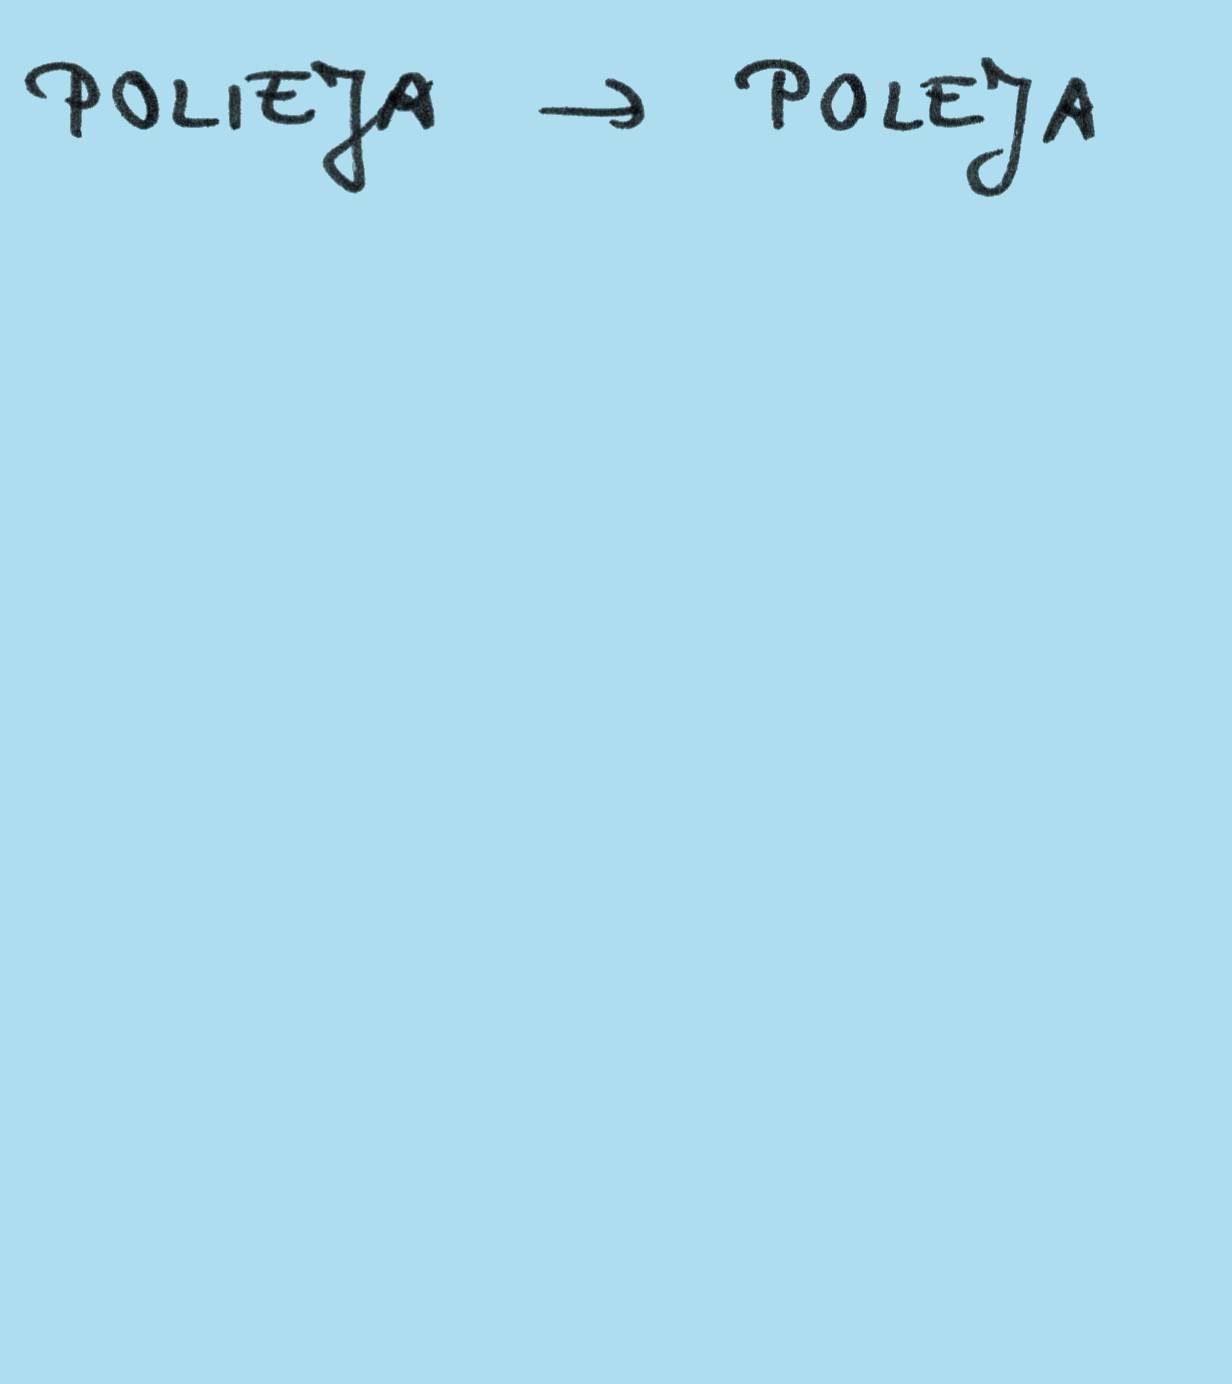 POLIEJA → POLEJA